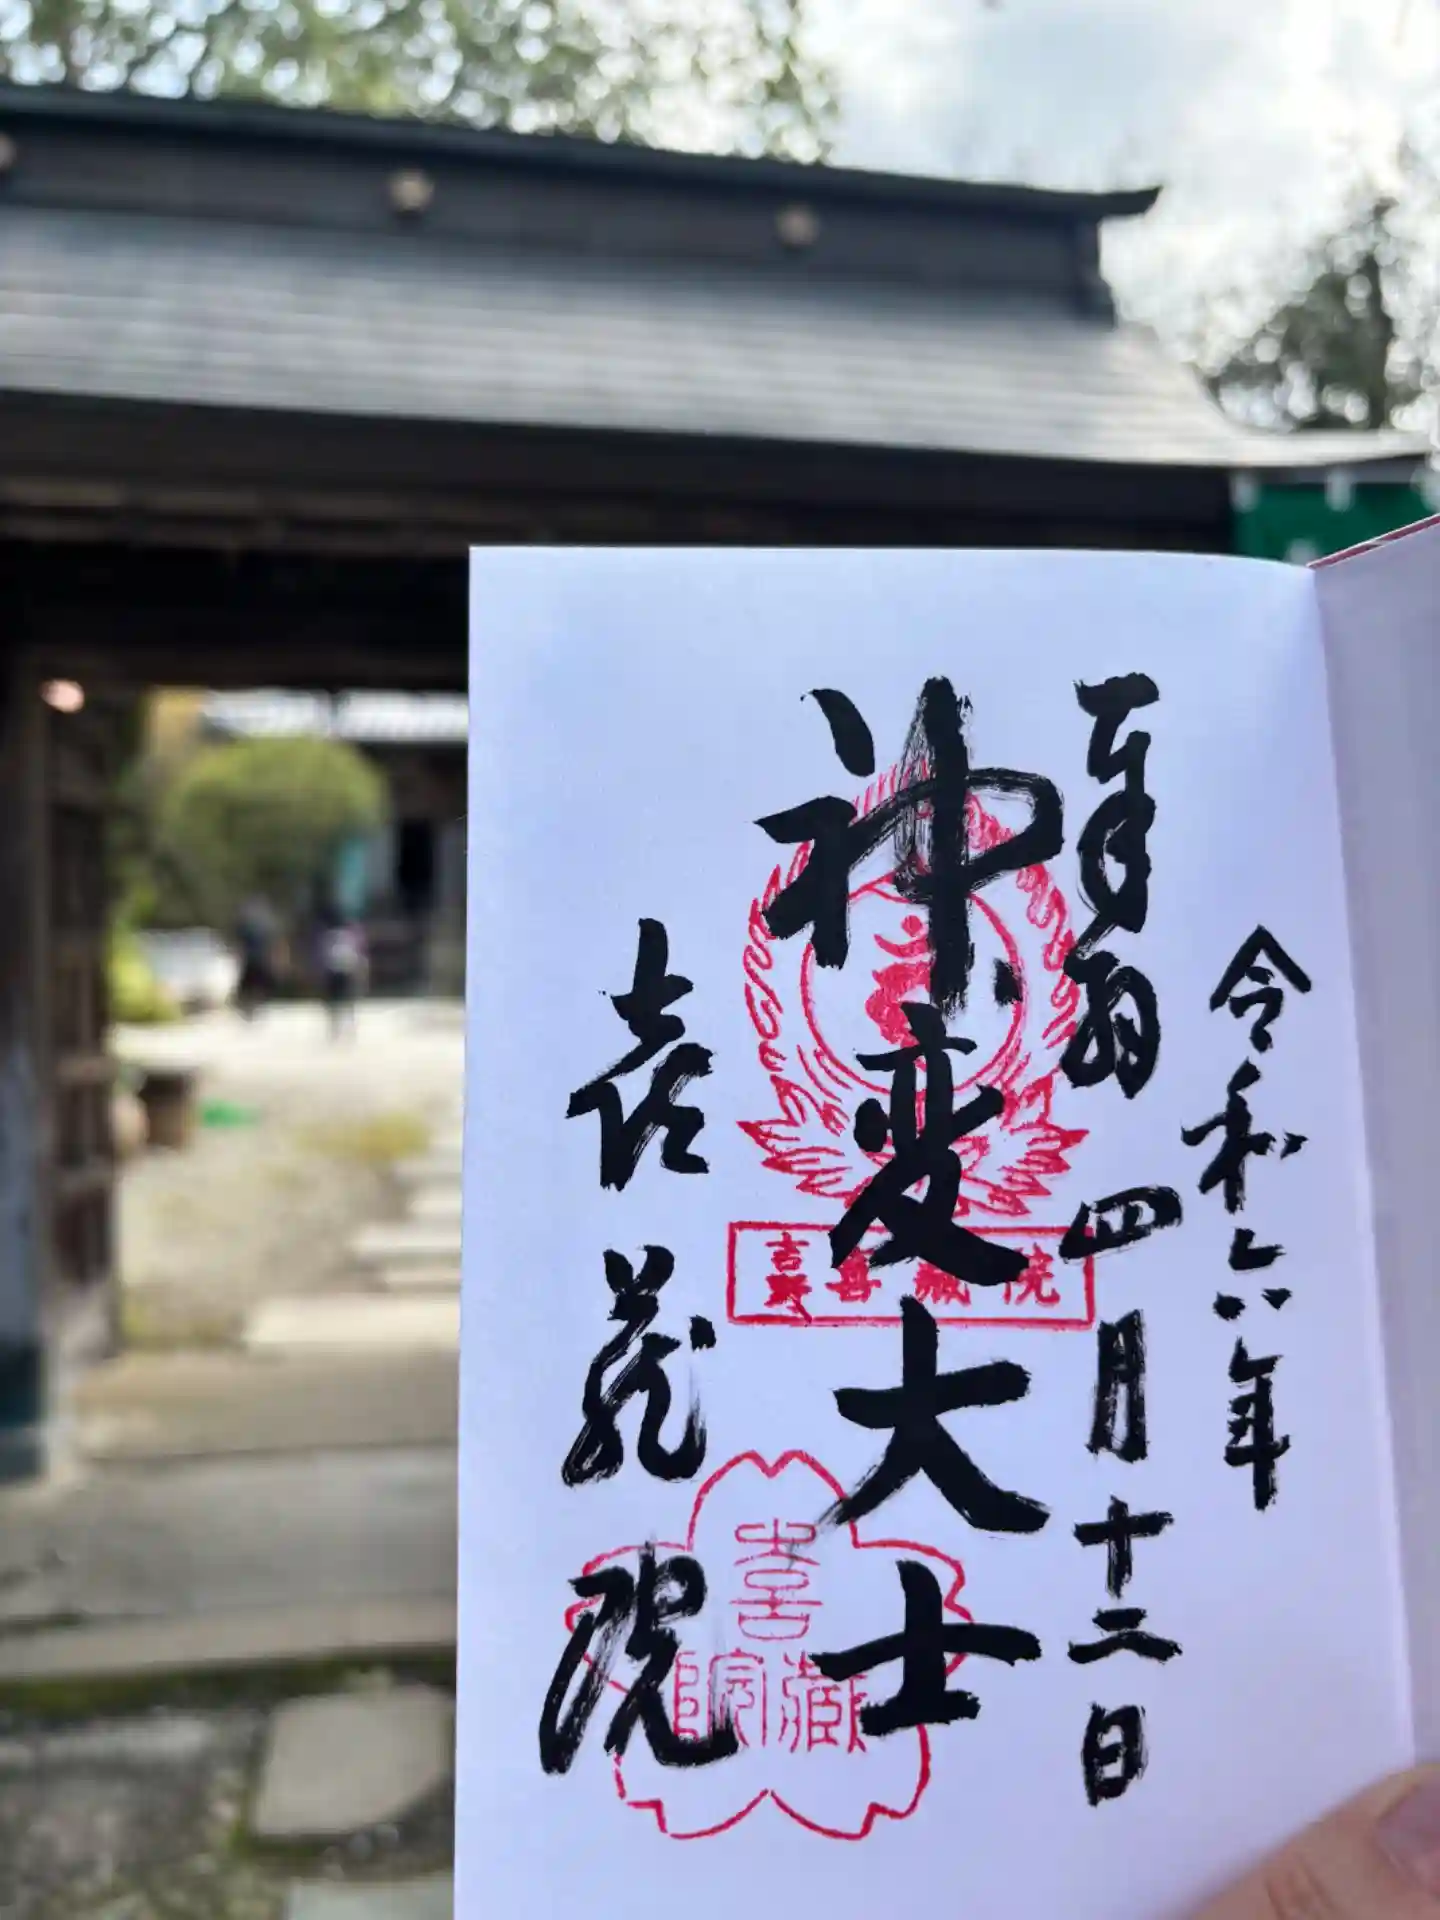 令和六年
奉拝 四月十二日
神変大士
吉野喜蔵院
喜蔵院
喜藏院